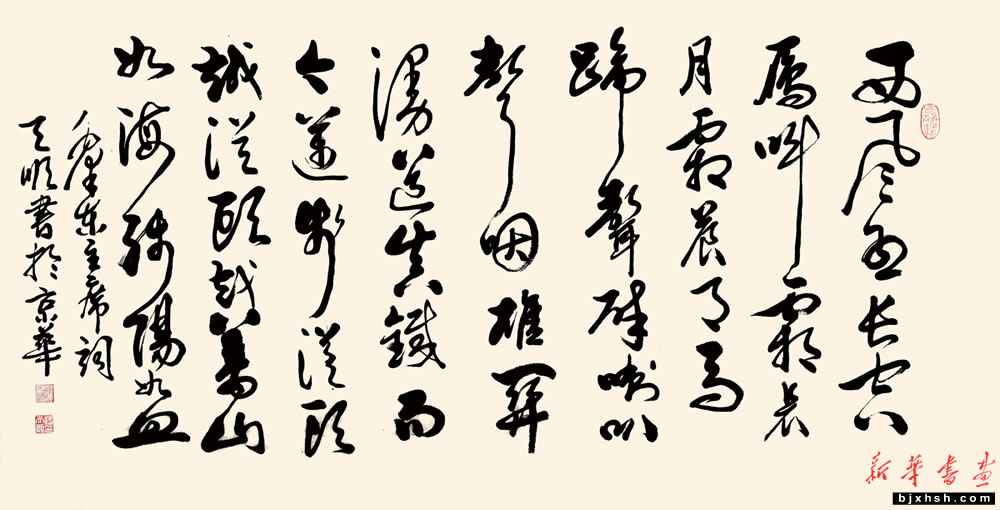 西風烈長空
雁叫霜晨
月霜晨月馬
蹄聲碎喇叭
聲咽雄関
漫道真鐵而
今邁步從頭
越從頭越蒼山
如海殘陽如血
毛澤東主席詞
天明書於京華
新華書畫
bjxhsh.com